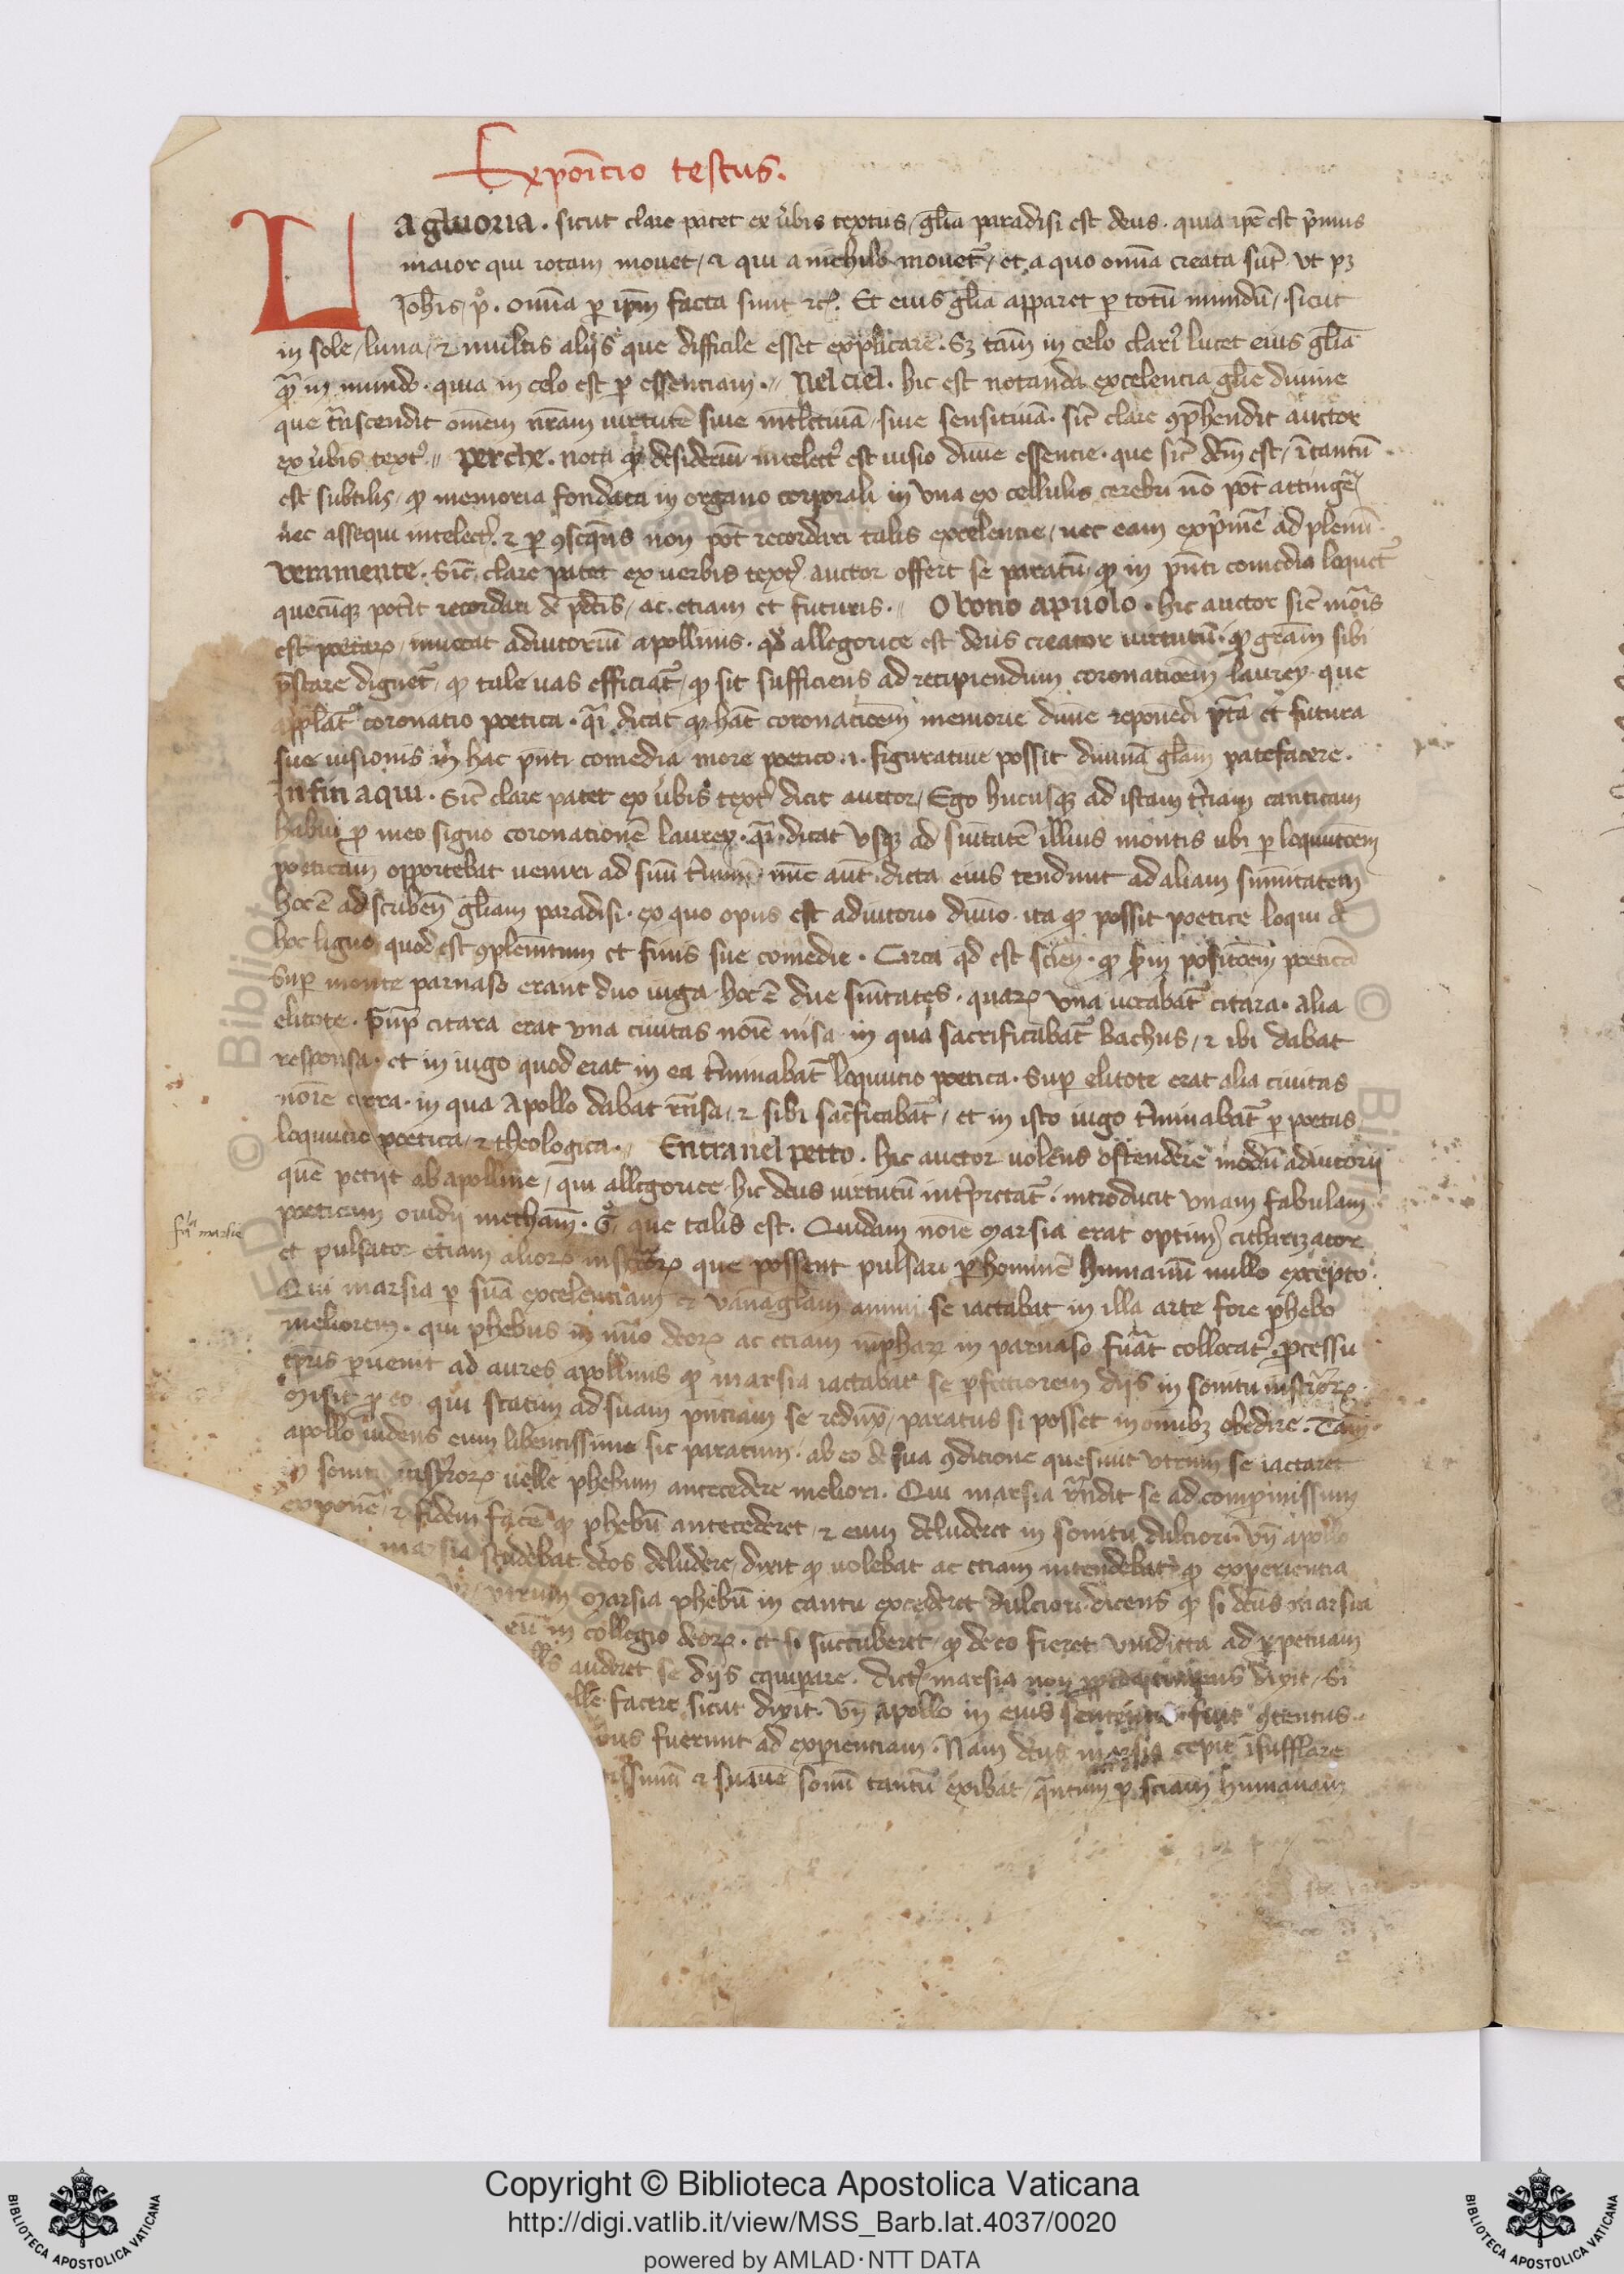 Expoĩcio testus.
La gluoria. sicut clare patet ex ũbis textus, gľia paradisi est deus. quia ip̃e est p̃mus
maior qui rotam mouet, ⁊ qui a nichilo mouet᷑, et a quo om̃ia creata sũt vt pꝫ
Ioħis, p̊. om̃ia ꝑ ip̃m facta sunt ⁊c̃. Et eius gľia apparet ꝑ totũ mundũ, sicut
in sole, luna, ⁊ multis alijs que difficile esset explicare. Sꝫ tam̃ in celo clari᷑ lucet eius gľia
q̃ in mundo. quia in celo est ꝑ essenciam. Nel ciel. hic est notanda excelencia gľie diuine
que t̃nscendit om̃em nr̃am uirtutẽ siue intľctiuã, siue sensitiuã. sic̃ clare ꝯp̃hendit auctor
ex ũbis text᷒. perche. nota ꝙ desideriũ intelect᷒ est uisio diuĩe essencie. que sic̃ dc̃m est, ĩtantũ
est subtilis, ꝙ memoria fondata in organo corporali in vna ex cellulis cerebri nõ põt attinge᷑
nec assequi intelect᷒. ⁊ ꝑ ꝯseq̃ns non põt recordari talis excelencie, nec eam exp̃imẽ ad plenũ.
veramente. Sic̃ clare patet ex uerbis text᷒ auctor offert se paratũ, ꝙ in p̃nti comedia loquet᷑
quecũqꝫ pot̃it recordari de p̃dc̃is, ac etiam et futuris. O bono apuolo. hic auctor sic̃ mor̃is
est poetaꝝ, inuocat adiutoriũ apollinis. qđ allegorice est deus creator uirtutũ. ꝙ gr̃am sibi
p̃stare dignet᷑, ꝙ tale uas efficiat᷑, ꝙ sit sufficiens ad recipiendum coronac̃oem laurey. que
app̃lat᷑ coronatio poetica. q̃i dicat ꝙ hãt coronaticõem memorie diuĩe reponẽdi p̃ta et futura
sue uisionis in hac p̃nti comedia more poetico .i. figuratiue possit diuinã gľiam patefacere.
Infin a qui. Sic̃ clare patet ex ũbis text᷒ dicit auctor, Ego hucusqꝫ ad istam t̃ciam canticam
habui ꝓ meo signo coronationẽ laurey. q̃i dicat vsqꝫ ad sũitatẽ illius montis ubi ꝑ loquutõem
poeticam opportebat ueniri ad suũ t̃minũ, nũc aut̃ dicta eius tendunt ad aliam sum̃itatem
hoc ẽ ad scribeñ gľiam paradisi. ex quo opus est adiutorio diuĩo ita ꝙ possit poetice loqui de
hoc ligno quod est ꝯplem̃tum et finis sue comedie. Circa qđ est scieñ. ꝙ scd̃m positõem poeticã
Suꝑ monte parnaso erant duo iuga, hoc ẽ due sũitates. quaꝝ vna uocabat᷑ citara. Alia
elitote. Suꝑ citara erat vna ciuitas noĩe nisa in qua sacrificabat᷑ bachus, ⁊ ibi dabat
responsa. et in iugo quod erat in ea t̃minabat᷑ loquutio poetica. Suꝑ elitote erat alia ciuitas
noĩe cirra. in qua Apollo dabat rñsa, ⁊ sibi sac̃ficabat᷑, et in isto iugo t̃minabat᷑ ꝑ poetas
loquutio poetica, ⁊ theologica. Entra nel petto. hic auctor uolens ostendere modũ adiutorij
quẽ petijt ab apolline, qui allegorice hic deus uirtutũ int̃pretat᷑. introducit vnam fabulam
fa marsie
poeticam ouidij metham̃. 6̊, que talis est. Quidam noĩe Marsia erat optim᷒ citharizator
et pulsator etiam alioꝝ instr̃oꝝ que possent pulsari ꝑ hominẽ humanũ nullo excepto.
Qui marsia ꝑ suã excelenciam et vanãgľiam animi se iactabat in illa arte fore phebo
meliorem. qui phebus in nũo deoꝝ ac etiam nĩphaꝝ in parnaso fu̾at collocat᷒. ꝓcessu
tp̃ris ꝑuenit ad aures apollinis ꝙ marsia iactabat se ꝑfectiorem dijs in sonitu instr̃oꝝ.
Misit ꝓ eo. qui statim ad suam p̃nciam se reduxit, paratus si posset in om̃ibꝫ obedire. Tam̃
apollo uidens eum libentissime sic paratum. ab eo de sua ꝯdicione quesiuit vtrum se iactaret
sonitu instr̃oꝝ uelle phebum antecedere meliori. Qui marsia r̃ndit se ad compmissum
exponẽ, ⁊ fidem facẽ ꝙ phebũ antecederet, ⁊ eum deluderet in sonitu dulciori. Vñ apollo
marsia studebat deos deludere, dixit ꝙ uolebat ac etiam intendebat ꝙ experientia
vtrum Marsia phebũ in cantu excederet dulciori. dicens ꝙ si dc̃us marsia
eũ in collegio deoꝝ. et si succũberet, ꝙ de eo fieret vindicta ad ꝑpetuam
auderet se dijs equiꝑare. dict᷒ marsia non dixit, Si
elle facere sicut dixit. Vñ Apollo in eius sententia fuit ꝯtentus.
fuerunt ad expienciam. Nam dc̃us marsia cepit ĩsufflare
issimũ ⁊ suaue sonũ tantũ exibat, q̃ntum ꝑ sciam̃ humanam
Copyright © Biblioteca Apostolica Vaticana
http://digi.vatlib.it/view/MSS_Barb.lat.4037/0020
powered by AMLAD·NTT DATA
BIBLIOTECA APOSTOLICA VATICANA
BIBLIOTECA APOSTOLICA VATICANA